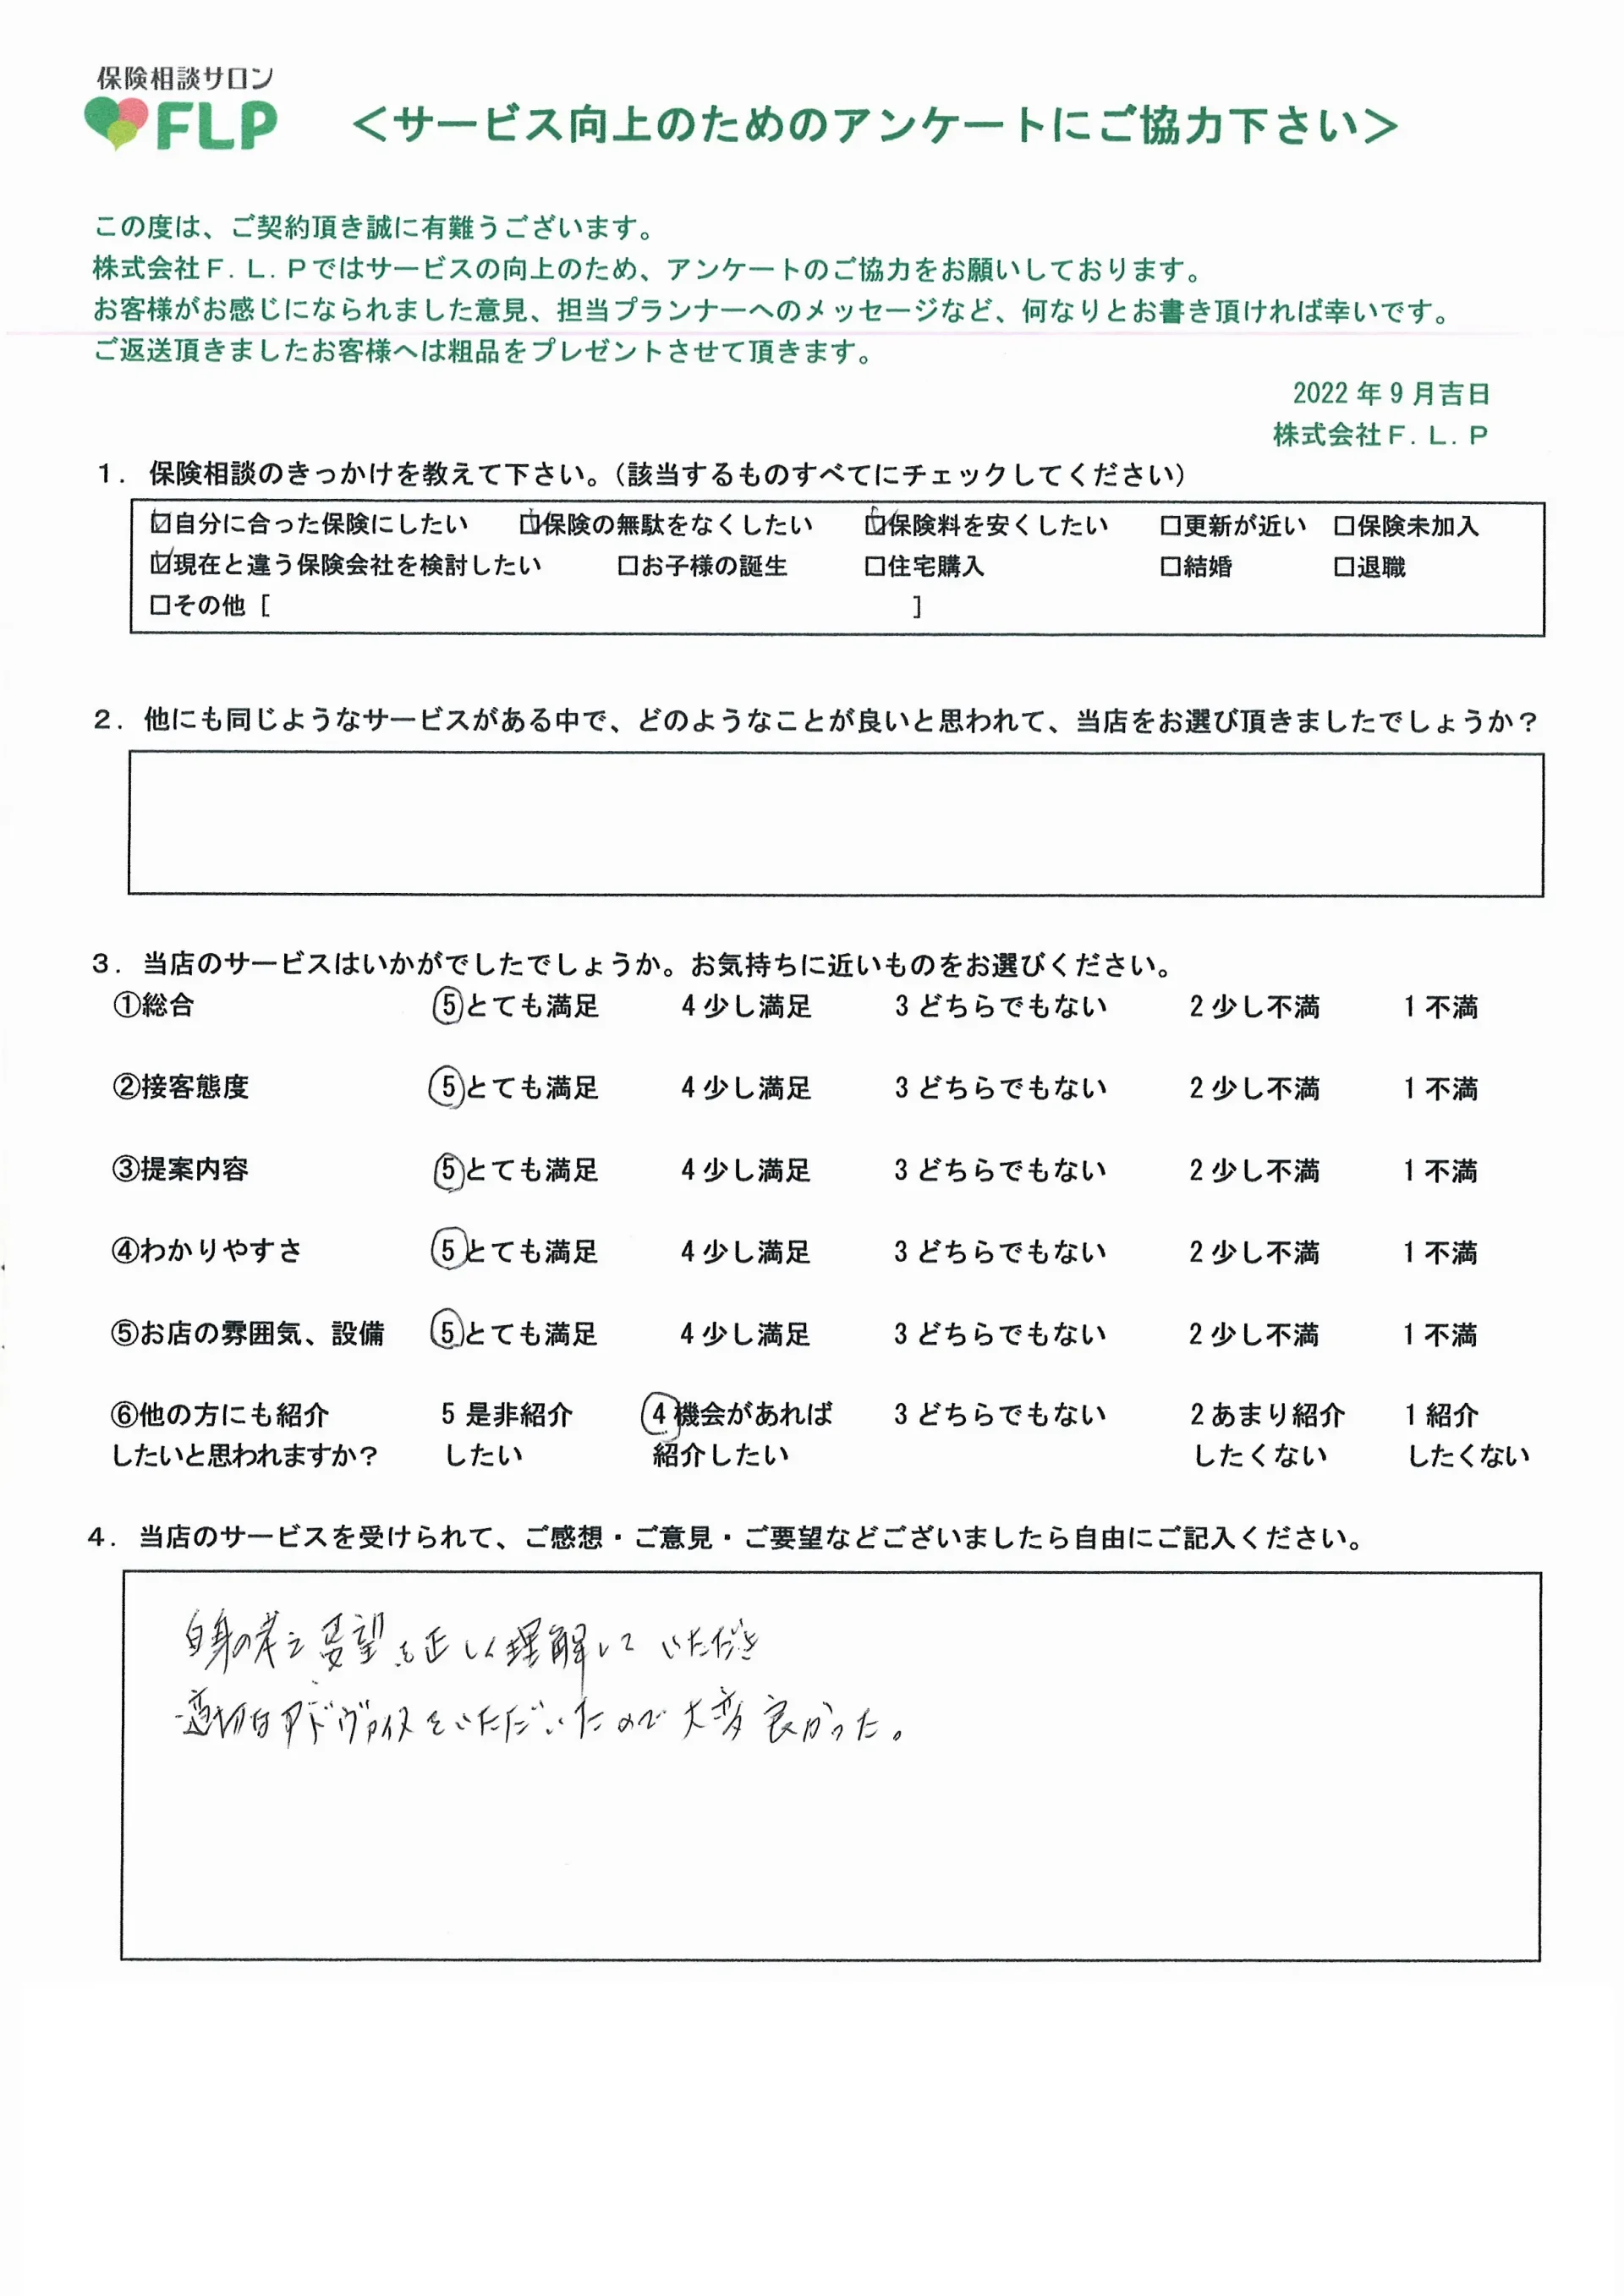 保険相談サロン
FLP
＜サービス向上のためのアンケートにご協力下さい＞
この度は、ご契約頂き誠に有難うございます。
株式会社Ｆ．Ｌ．Ｐではサービスの向上のため、アンケートのご協力をお願いしております。
お客様がお感じになられました意見、担当プランナーへのメッセージなど、何なりとお書き頂ければ幸いです。
ご返送頂きましたお客様へは粗品をプレゼントさせて頂きます。
2022 年 9 月吉日
株式会社Ｆ．Ｌ．Ｐ
１．保険相談のきっかけを教えて下さい。（該当するものすべてにチェックしてください）
☑自分に合った保険にしたい ☑保険の無駄をなくしたい ☑保険料を安くしたい □更新が近い □保険未加入
☑現在と違う保険会社を検討したい □お子様の誕生 □住宅購入 □結婚 □退職
□その他 [ ]
２．他にも同じようなサービスがある中で、どのようなことが良いと思われて、当店をお選び頂きましたでしょうか？
３．当店のサービスはいかがでしたでしょうか。お気持ちに近いものをお選びください。
①総合 5 とても満足 4 少し満足 3 どちらでもない 2 少し不満 1 不満
②接客態度 5 とても満足 4 少し満足 3 どちらでもない 2 少し不満 1 不満
③提案内容 5 とても満足 4 少し満足 3 どちらでもない 2 少し不満 1 不満
④わかりやすさ 5 とても満足 4 少し満足 3 どちらでもない 2 少し不満 1 不満
⑤お店の雰囲気、設備 5 とても満足 4 少し満足 3 どちらでもない 2 少し不満 1 不満
⑥他の方にも紹介 5 是非紹介 4 機会があれば 3 どちらでもない 2 あまり紹介 1 紹介
したいと思われますか？ したい 紹介したい したくない したくない
４．当店のサービスを受けられて、ご感想・ご意見・ご要望などございましたら自由にご記入ください。
自身の考え要望を正しく理解していただき
適切なアドヴァイスをいただいたので大変良かった。